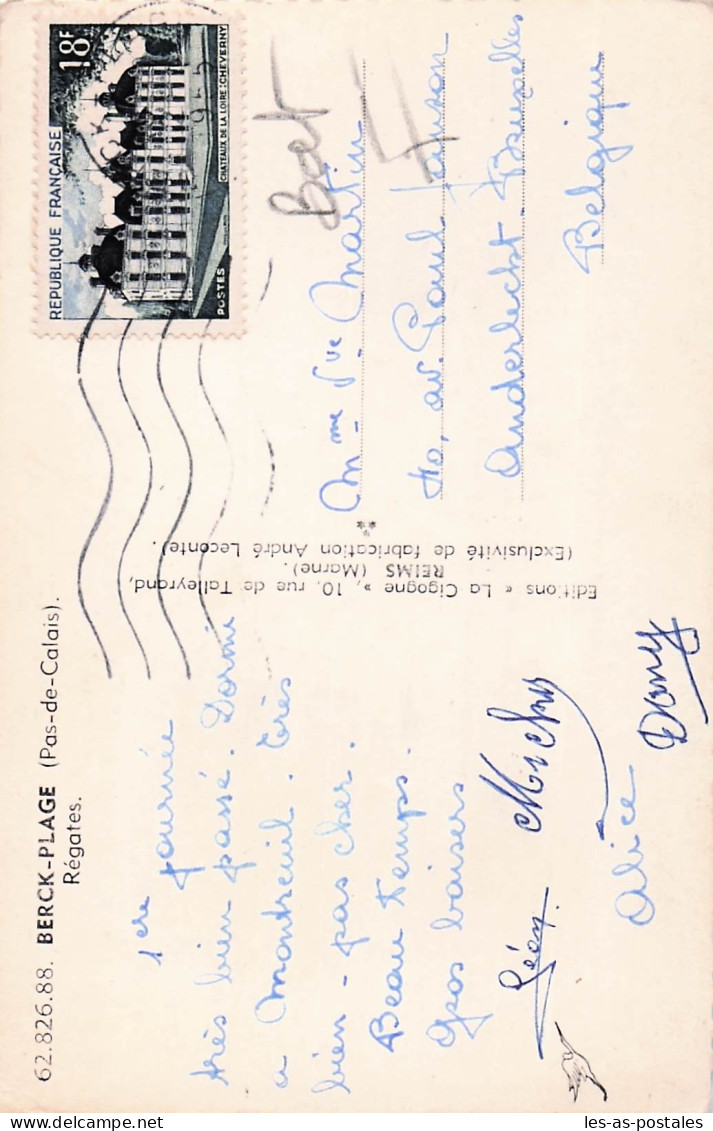 62.826.88. BERCK-PLAGE (Pas-de-Calais).
Régates.
1ère journée
très bien passé. Dormi
a Montreuil. très
bien - pas cher.
Beau temps.
Gros baisers
Léon. Michou
Alice
Dany
Editions « La Cigogne », 10, rue de Talleyrand,
REIMS (Marne).
(Exclusivité de fabrication André Leconte).
RÉPUBLIQUE FRANÇAISE
18F
CHATEAUX DE LA LOIRE : CHEVERNY
POSTES
1955
Mme Vve Martin
40, av. Paul Janson
Anderlecht - Bruxelles
Belgique
les-as-postales